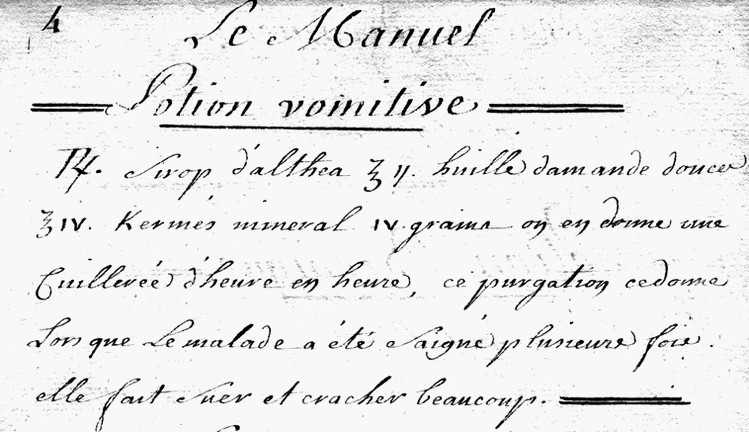 4
Le Manuel
Potion vomitive
℞. Sirop d'althea ℥ ij. huille damande douces
℥ IV. Kermés mineral IV. grains on en donne une
Cuillereé d'heure en heure, ce purgation ce donne
Lors que Le malade a été Saigné plusieurs fois.
elle fait Suer et cracher beaucoup.